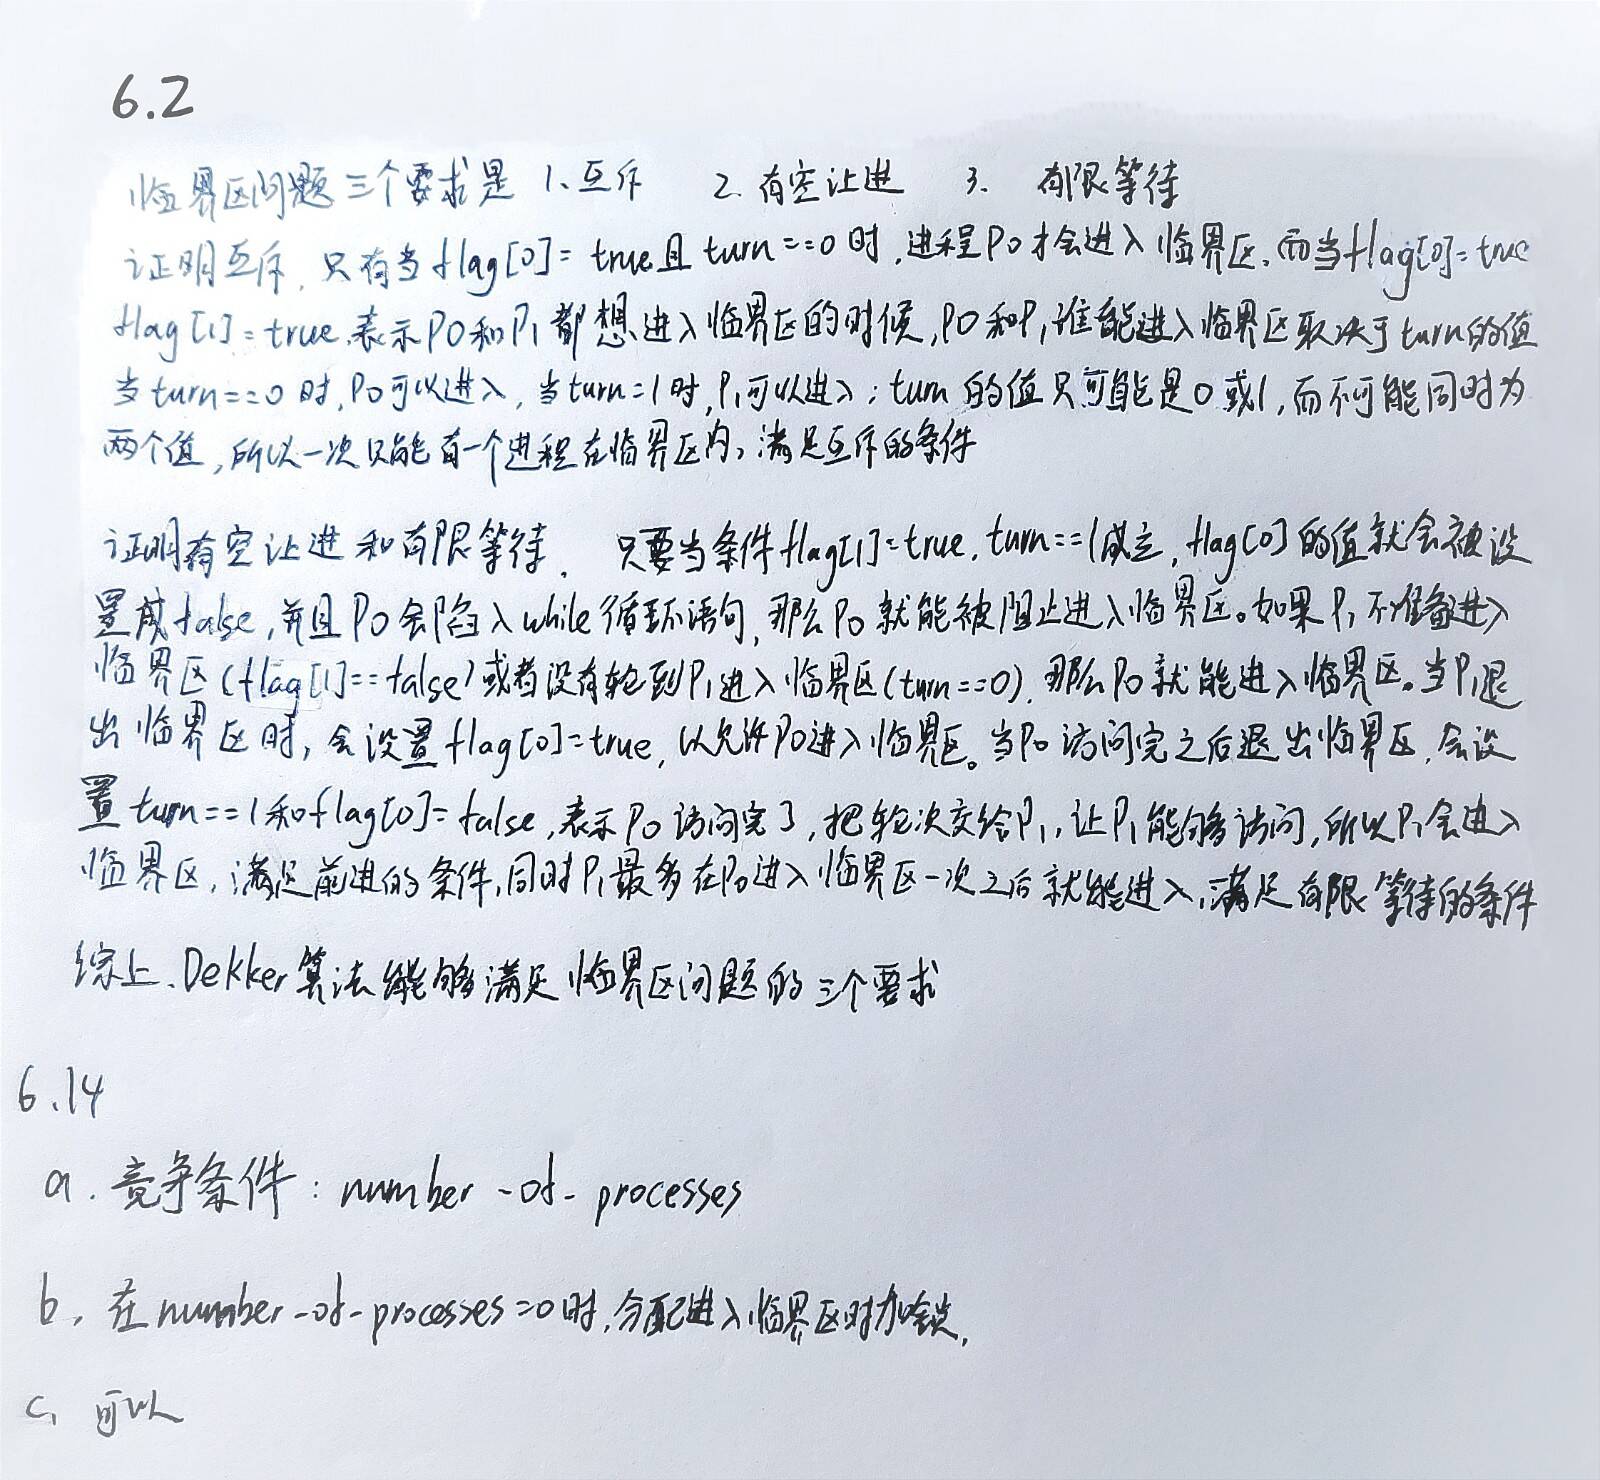 6.2
临界区问题三个要求是 1、互斥 2、有空让进 3、有限等待
证明互斥，只有当flag[0]=true且turn==0时，进程P0才会进入临界区，而当flag[0]=true
flag[1]=true，表示P0和P1都想进入临界区的时候，P0和P1谁能进入临界区取决于turn的值
当turn==0时，P0可以进入，当turn=1时，P1可以进入；turn的值只可能是0或1，而不可能同时为
两个值，所以一次只能有一个进程在临界区内，满足互斥的条件
证明有空让进和有限等待，只要当条件flag[1]=true，turn==1成立，flag[0]的值就会被设
置成false，并且P0会陷入while循环语句，那么P0就能被阻止进入临界区。如果P1不准备进入
临界区(flag[1]==false)或者没有轮到P1进入临界区(turn==0)，那么P0就能进入临界区。当P1退
出临界区时，会设置flag[0]=true，以允许P0进入临界区。当P0访问完之后退出临界区，会设
置turn==1和flag[0]=false，表示P0访问完了，把轮次交给P1，让P1能够访问，所以P1会进入
临界区，满足前进的条件，同时P1最多在P0进入临界区一次之后就能进入，满足有限等待的条件
综上、Dekker算法能够满足临界区问题的三个要求
6.14
a. 竞争条件：number-of-processes
b. 在number-of-processes=0时，分配进入临界区时加锁，
c、可以